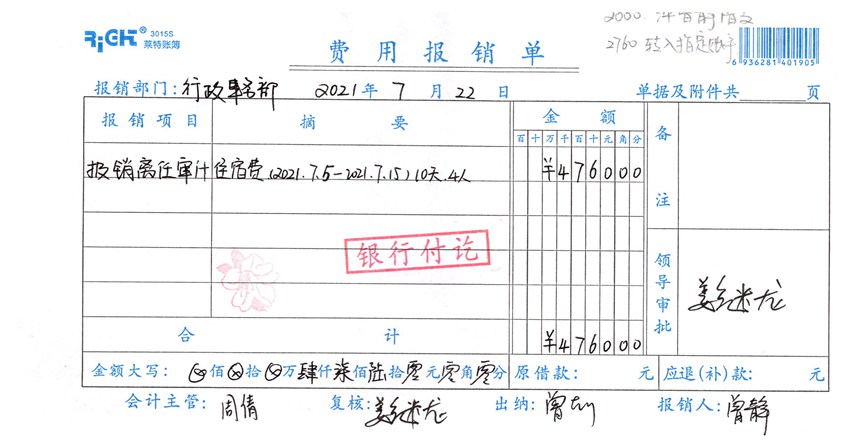 RiGHT® 3015S
莱特账簿
2000.
2760 转入指定账户
6 936281 401905
费用报销单
报销部门:行政事务部 2021年7月22日 单据及附件共 页
报销项目 摘要 金额 备注
百十万千百十元角分
报销离任审计住宿费(2021.7.5-2021.7.15)10天.4人 ¥476000
银行付讫
领导审批 姜继龙
合计 ¥476000
金额大写:⊗佰⊗拾⊗万肆仟柒佰陆拾零元零角零分 原借款: 元 应退(补)款: 元
会计主管:周倩 复核:姜继龙 出纳:曾 报销人:曾静